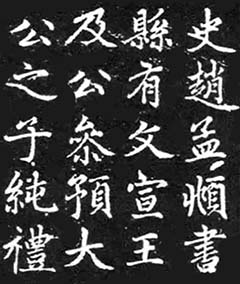 史趙孟頫書
縣有文宣王
及公叅預大
公之子純禮